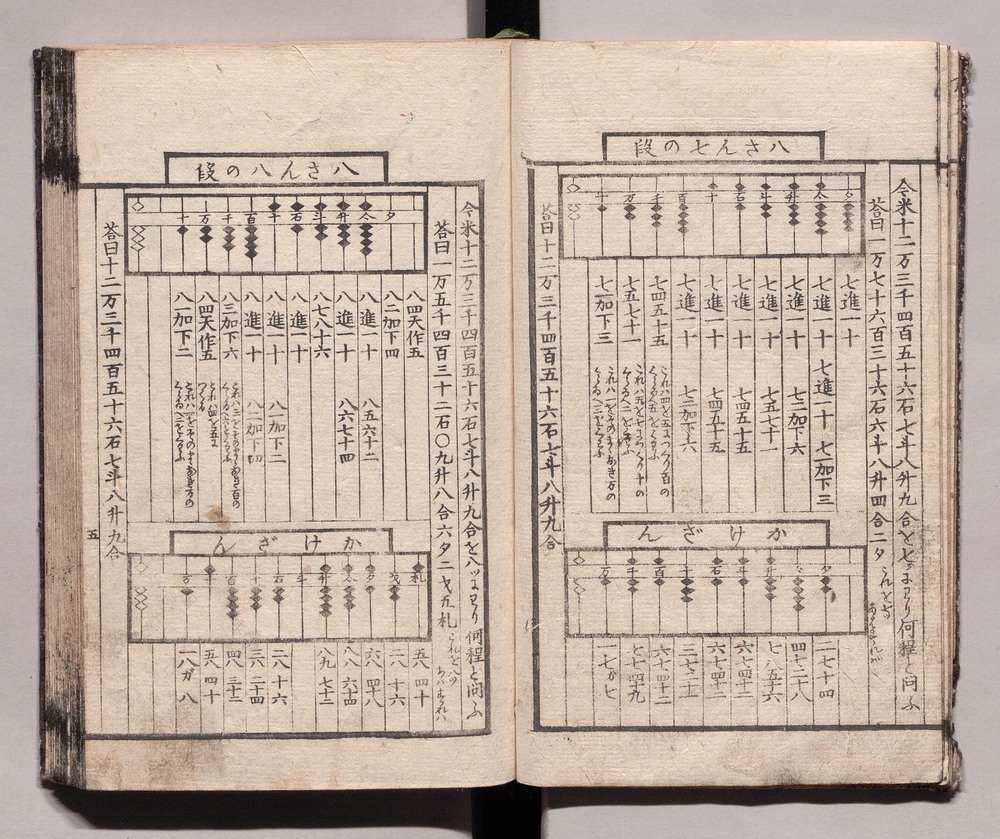 八さん七の段
今米十二万三千四百五十六石七斗八升九合を七ツにわり何程と問ふ
荅曰一万七千六百三十六石六斗八升四合二夕
夕 合 升 斗 石 十 百 千 万 十
七進一十
七進一十 七進一十 七一加下三
七進一十 七二加下六
七進一十 七五七十一
七進一十 七四五十五
七進一十 七四五十五
七進一十 七二加下六
七四五十五
七五七十一
七一加下三
かけざん
夕 合 升 斗 石 十 百 千 万
二七十四
四七二十八
七八五十六
六七四十二
六七四十二
三七二十一
六七四十二
七七四十九
一七が七
荅曰十二万三千四百五十六石七斗八升九合
八さん八の段
今米十二万三千四百五十六石七斗八升九合を八ツにわり何程と問ふ
荅曰一万五千四百三十二石〇九升八合六夕二才五札
夕 合 升 斗 石 十 百 千 万 十
八四天作五
八二加下四
八進一十 八五六十二
八進一十 八六七十四
八七八十六
八進一十
八進一十 八一加下二
八進一十 八二加下四
八三加下六
八四天作五
八一加下二
かけざん
札 才 夕 合 升 斗 石 十 百 千 万
五八四十
二八十六
六八四十八
八八六十四
八九七十二
二八十六
三八二十四
四八三十二
五八四十
一八ガ八
荅曰十二万三千四百五十六石七斗八升九合
五